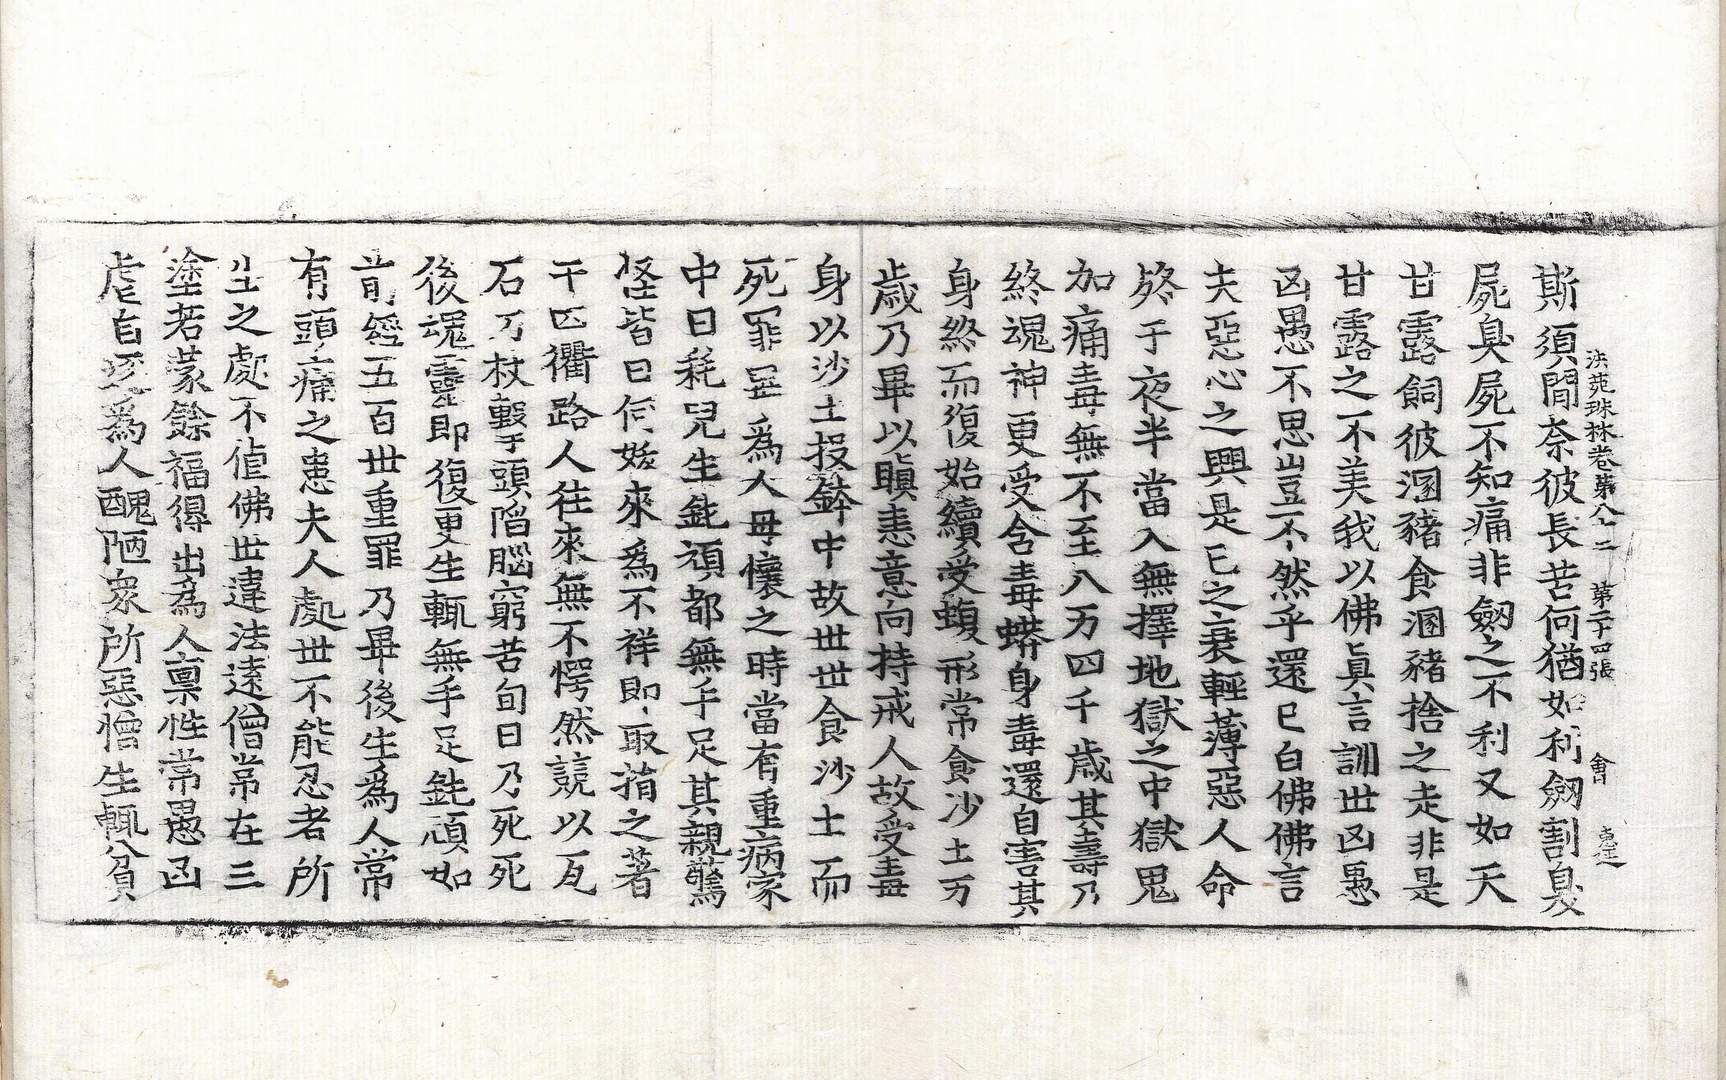 斯須間奈彼長苦何猶如利劔割臭
法苑珠林卷第八十二 第二十四張 會
屍臭屍不知痛非劔之不利又如天
甘露飼彼溷豬食溷豬捨之走非是
甘露之不美我以佛眞言訓世凶愚
凶愚不思豈不然乎還已白佛佛言
夫惡心之興是己之衰輕薄惡人命
終于夜半當入無擇地獄之中獄鬼
加痛毒無不至八万四千歲其壽乃
終魂神更受含毒蟒身毒還自害其
身終而復始續受蝮形常食沙土万
歲乃畢以瞋恚意向持戒人故受毒
身以沙土投鉢中故世世食沙土而
死罪畢爲人母懷之時當有重病家
中日耗兒生鈍頑都無手足其親驚
怪皆曰何妖來爲不祥即取捐之著
于四衢路人往來無不愕然競以瓦
石刀杖擊于頭陷腦窮苦旬日乃死死
後魂靈即復更生輒無手足鈍頑如
前經五百世重罪乃畢後生爲人常
有頭痛之患夫人處世不能忍者所
生之處不値佛世違法遠僧常在三
塗若蒙餘福得出爲人禀性常愚凶
虐自逐爲人醜陋衆所惡憎生輒貧